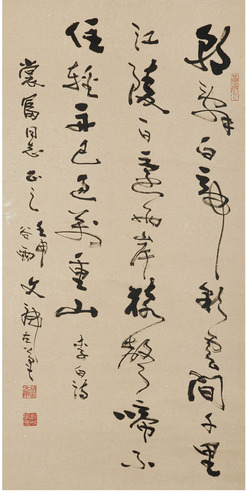 朝辭白帝彩雲間千里
江陵一日還兩岸猿聲啼不
住輕舟已過萬重山 李白詩
同志正之 壬申谷雨 左筆